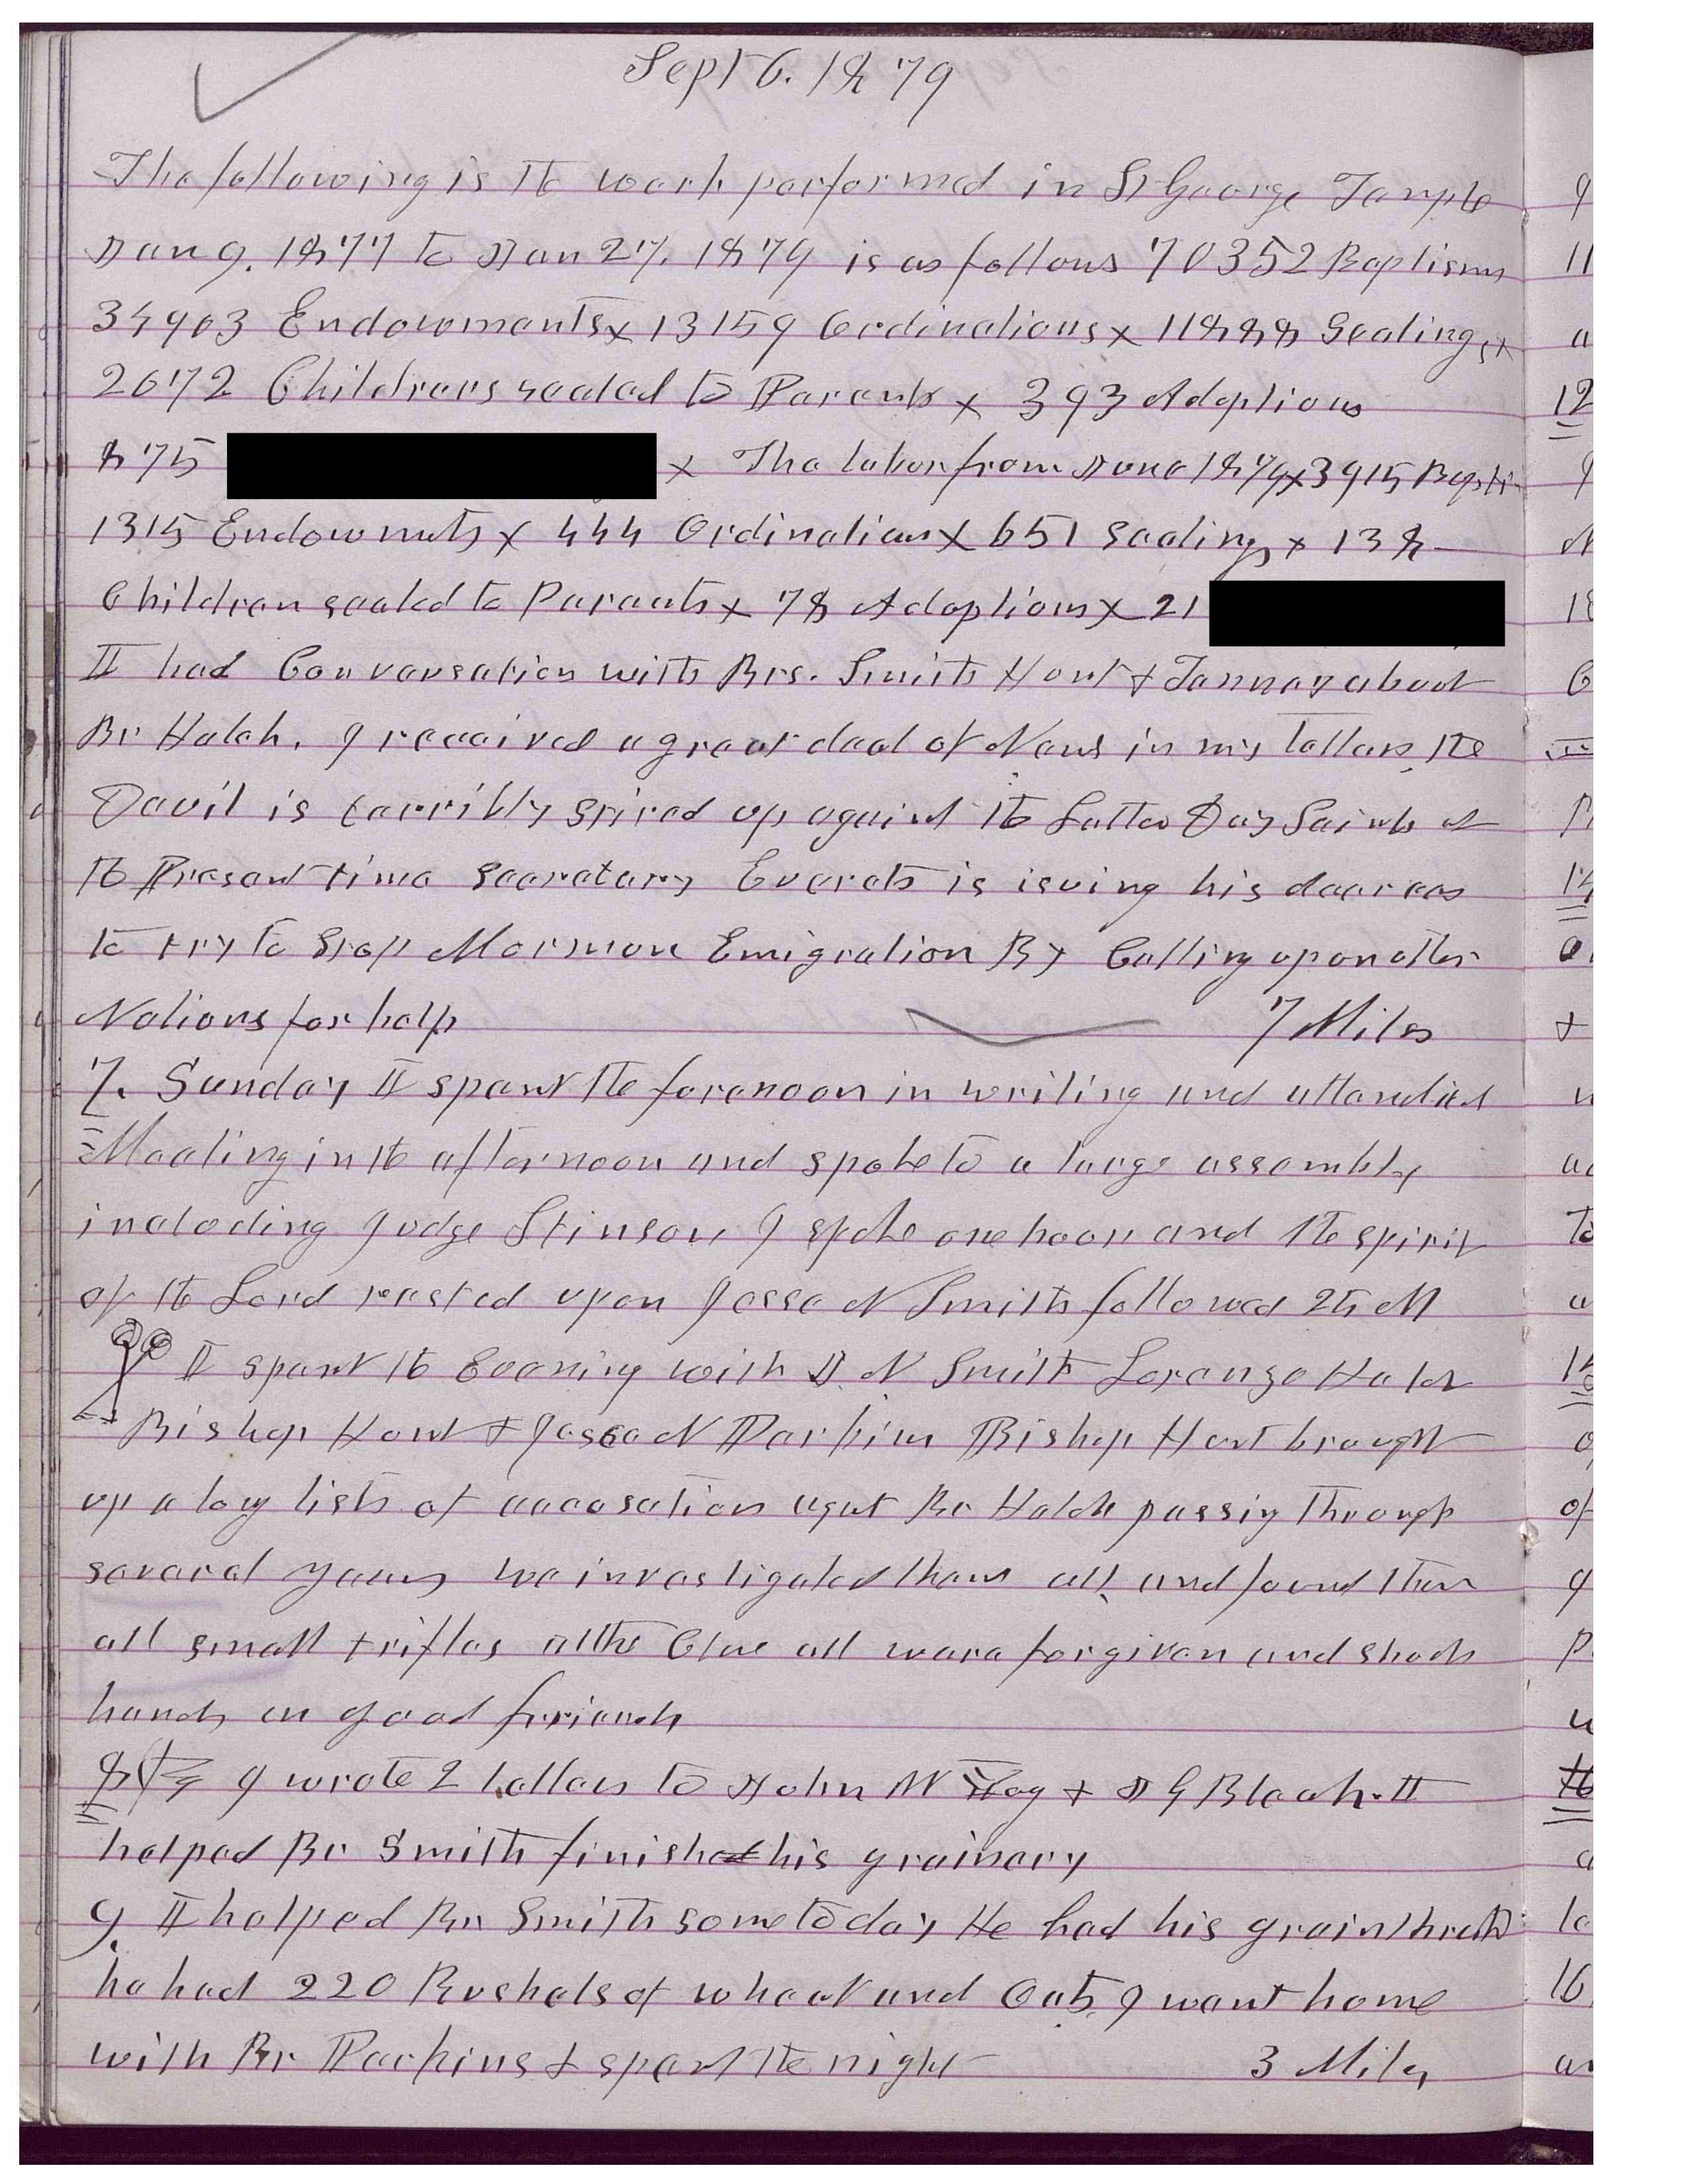 Sept 6. 1879
The following is the work performed in St George Temple
Jan 9. 1877 to Jan 27, 1879 is as follows 70352 Baptisms
34903 Endowments x 13159 Ordinations x 11888 Sealings x
2672 Childrens sealed to Parents x 393 Adoptions
875 x The labor from June 1879 x 3915 Baptis
1315 Endowmets x 444 Ordinations x 651 Sealings x 138
Children sealed to Parents x 78 Adoptions x 21
I had Conversation with Brs. Smith Hunt & Tanney about
Br Hatch. I received a great deal of News in my letters the
Devil is terribly stired up against the Latter Day Saints at
the Present time Secretary Everets is isuing his decrees
to try to stop Mormon Emigration By Calling upon other
Nations for help 7 Miles
7. Sunday I spent the forenoon in writing and attended
Meeting in the afternoon and spoke to a large assembly
including Judge Stinson I spoke one hour and the spirit
of the Lord rested upon Jesse N Smith followed 25 M
I spent the Evening with J. N Smith Lorenzo Hatch
Bishop Hunt & Jesse N Perkins Bishop Hunt brought
up a long lists of accusation agnst Br Hatch passing through
several years we investigated them all and found them
all small trifles all were forgiven and shook
hands in good friends
8 I wrote 2 letters to John M & J G Bleak. I
helped Br Smith finished his grainery
9. I helped Br Smith some to day He had his grain thresh
he had 220 Bushels of wheat and Oats, I went home
with Br Perkins & spent the night 3 Miles
9
11
a
12